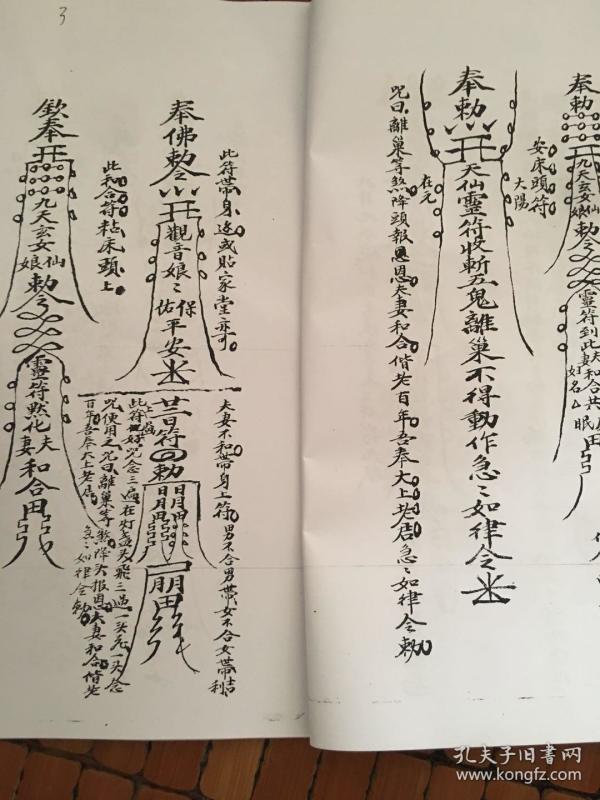 奉勅
九天玄女仙娘
勅令
靈符到此夫妻和合共眠
姓名
安床頭符
大陽
奉勅
天仙靈符收斬五鬼離巢不得動作急〻如律令
在元
咒曰離巢等煞降頭報恩恩夫妻和合偕老百年吾奉太上老君急〻如律令勅
3
此符帶身邊或貼家堂亦可
奉佛勅令
觀音娘〻保佑平安
夫妻不和帶身上符男不合男帶女不合女帶吉利
符
勅
日月日月
朋
此符
咒念三遍在灯盏头飛三過一头
一头念
咒使用之咒曰離巢等煞降头报恩夫妻和合偕老
百年吾奉太上老君急〻如律令勅
此和合符粘床頭上
欽奉
九天玄女仙娘
勅令
靈符熬化夫妻和合
孔夫子旧書网
www.kongfz.com